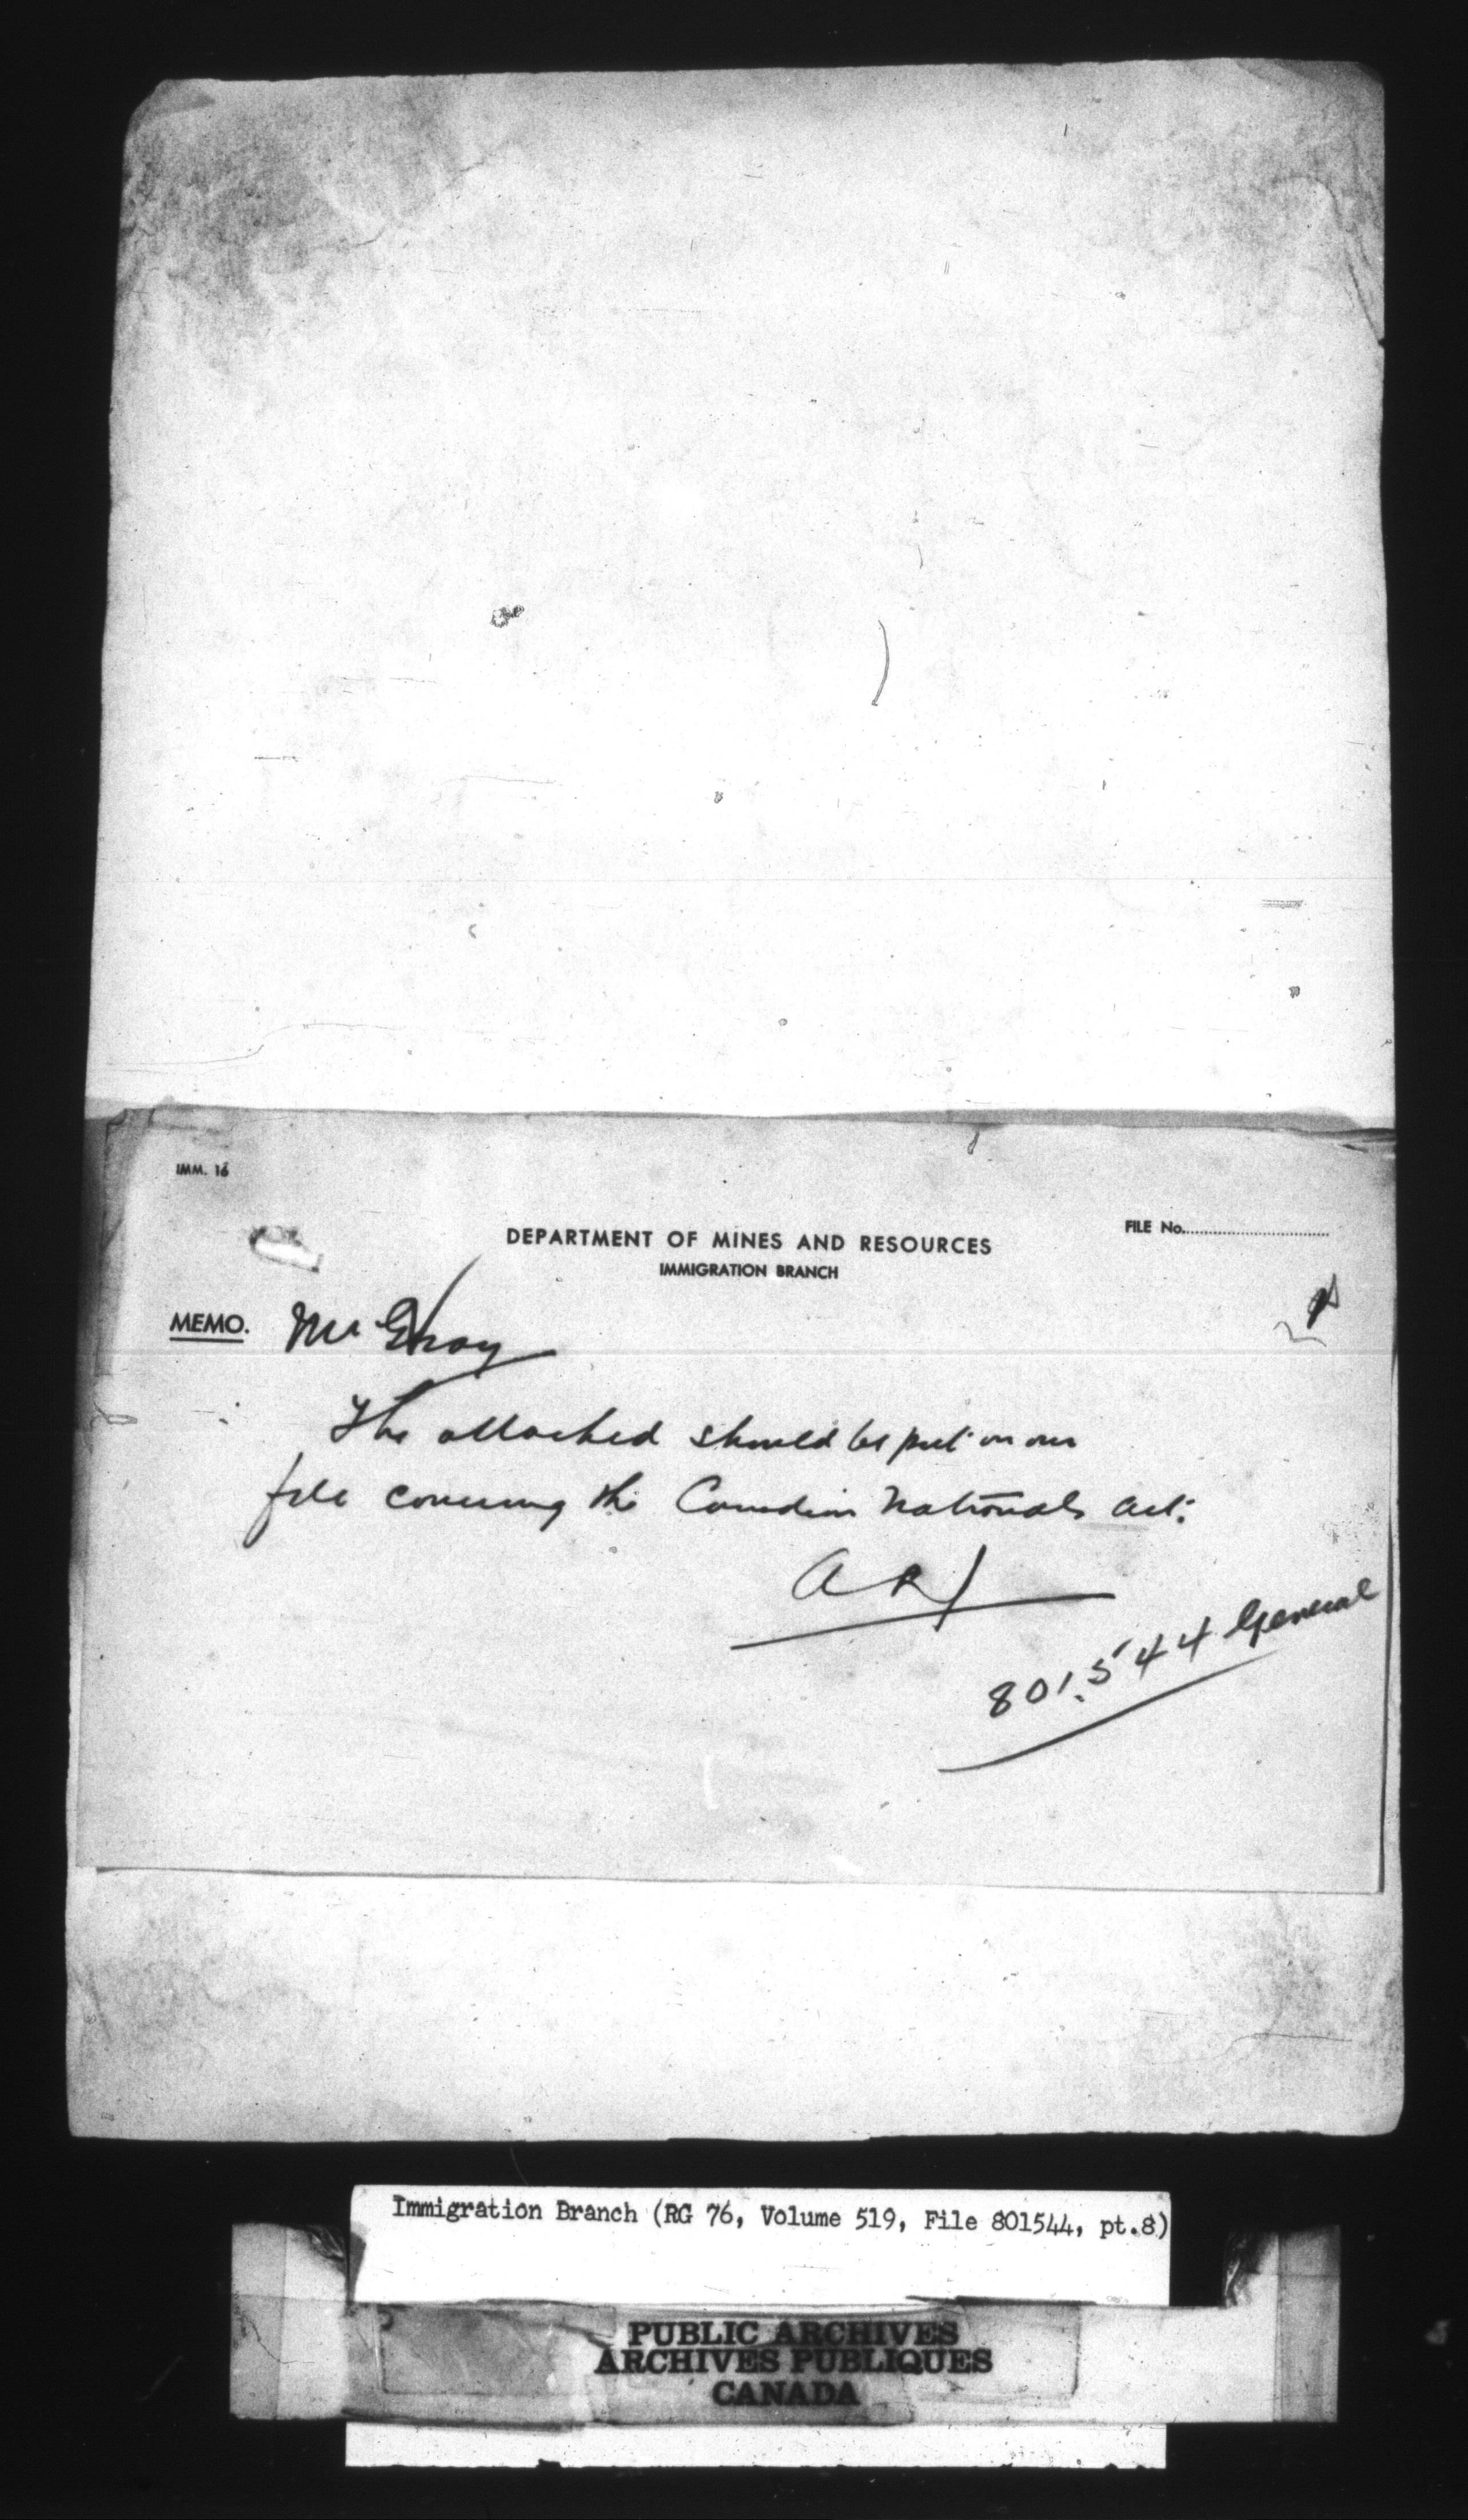 IMM. 16
DEPARTMENT OF MINES AND RESOURCES
IMMIGRATION BRANCH
FILE No.
MEMO. Mr Gray
The attached should be put on our
file covering the Canadian Nationals Act.
801,544 General
Immigration Branch (RG 76, Volume 519, File 801544, pt.8)
PUBLIC ARCHIVES
ARCHIVES PUBLIQUES
CANADA